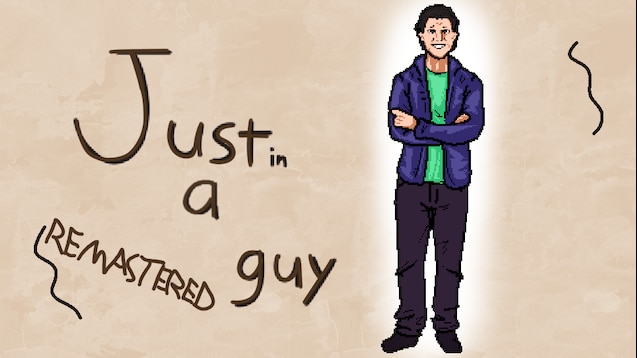 Justin
a
guy
REMASTERED